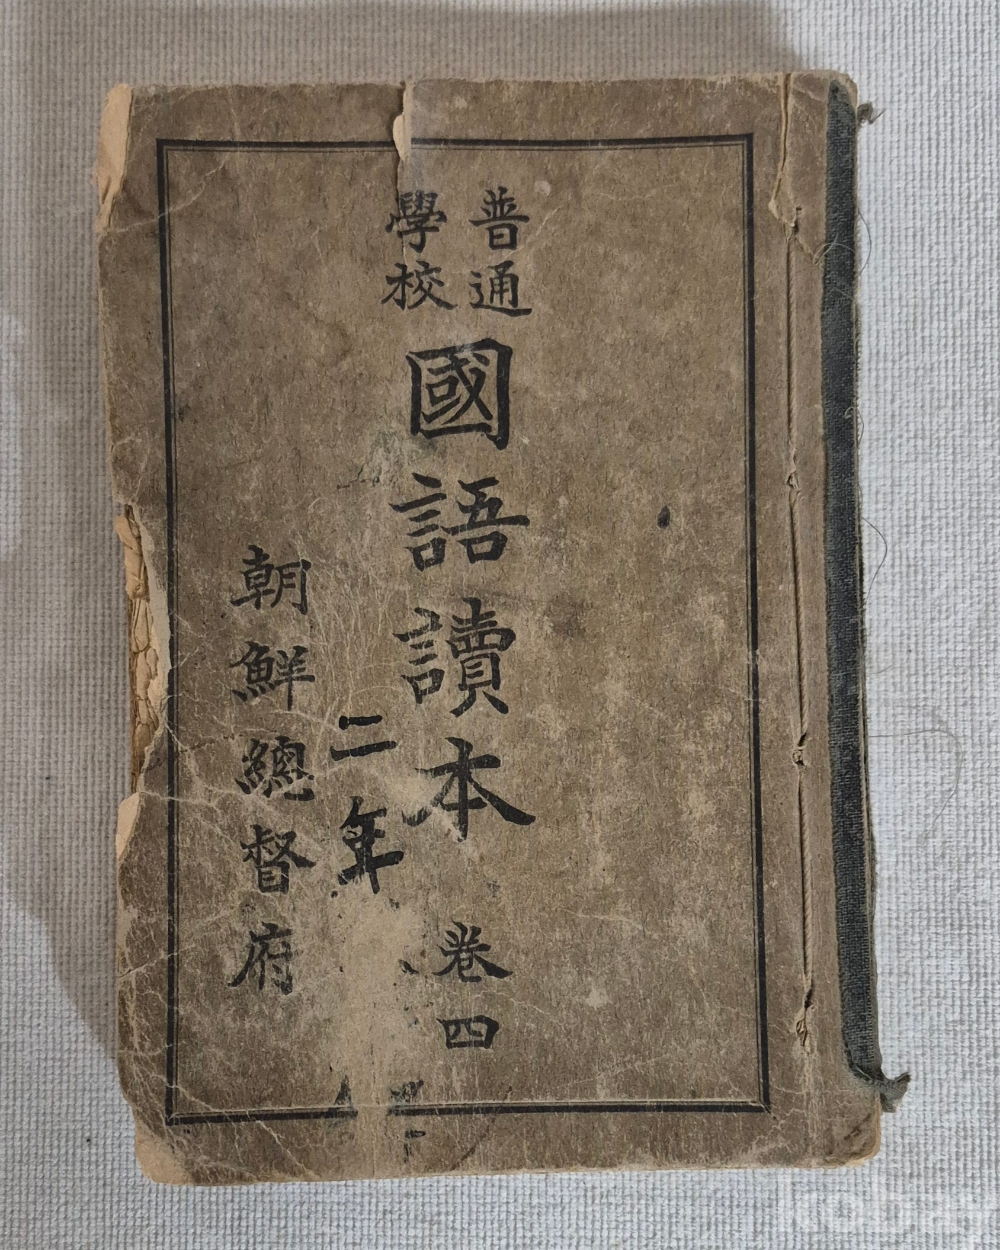 普通
學校
國語讀本 卷四
二年
朝鮮總督府
kobay